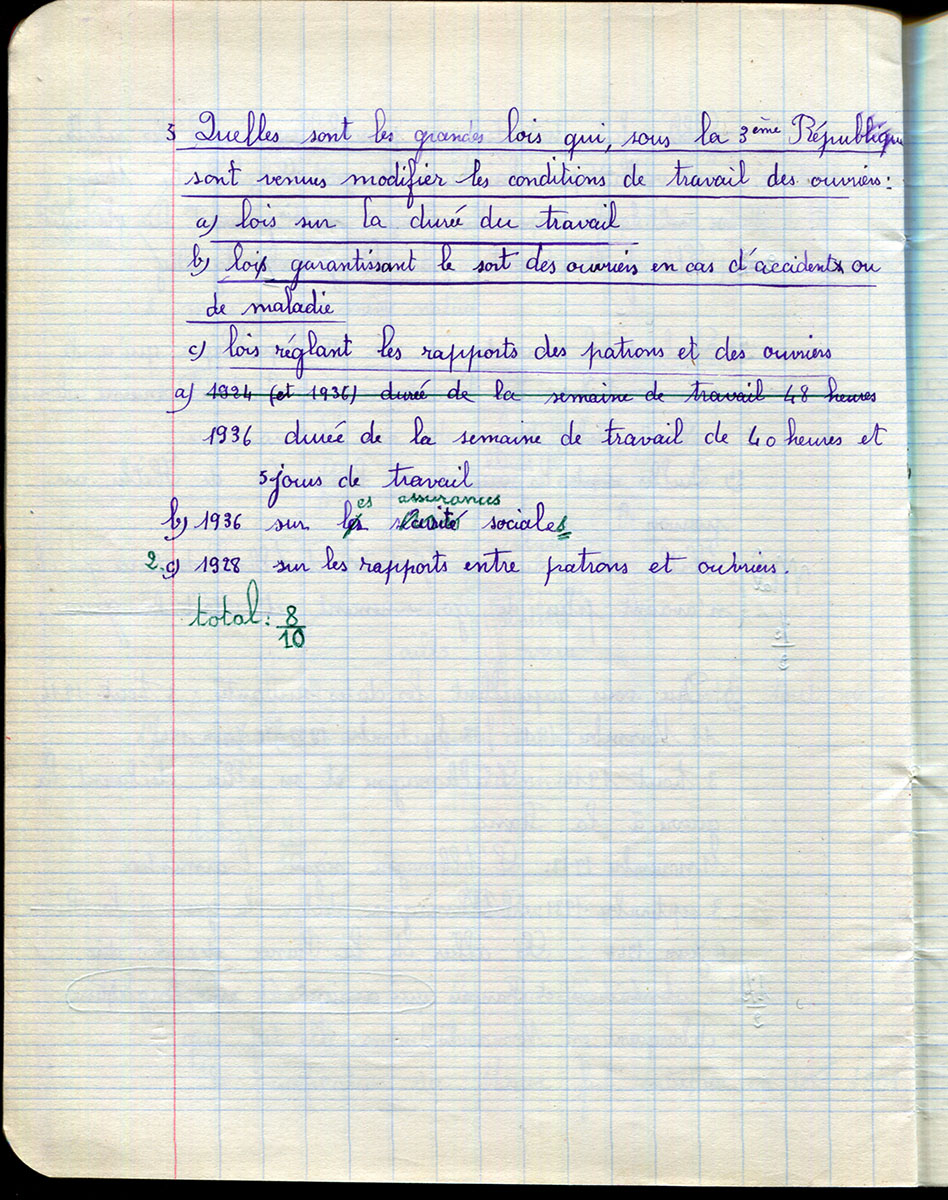 3 Quelles sont les grandes lois qui, sous la 3ème République
sont venues modifier les conditions de travail des ouvriers :
a) lois sur la durée du travail
b) lois garantissant le sort des ouvriers en cas d'accident ou
de maladie
c) lois réglant les rapports des patrons et des ouvriers
a) 1924 (et 1936) durée de la semaine de travail 48 heures
1936 durée de la semaine de travail de 40 heures et
5 jours de travail
es assurances
b) 1936 sur l sociales
2. c) 1928 sur les rapports entre patrons et ouvriers.
total : 8/10